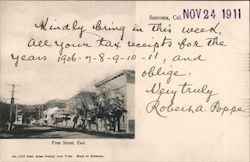 Sonoma, Cal. NOV 24 1911
Kindly bring in this week,
All your tax receipts for the
years 1906-7-8-9-10-11, and
oblige.
Very truly
Robert A. Poppe
First Street, East.